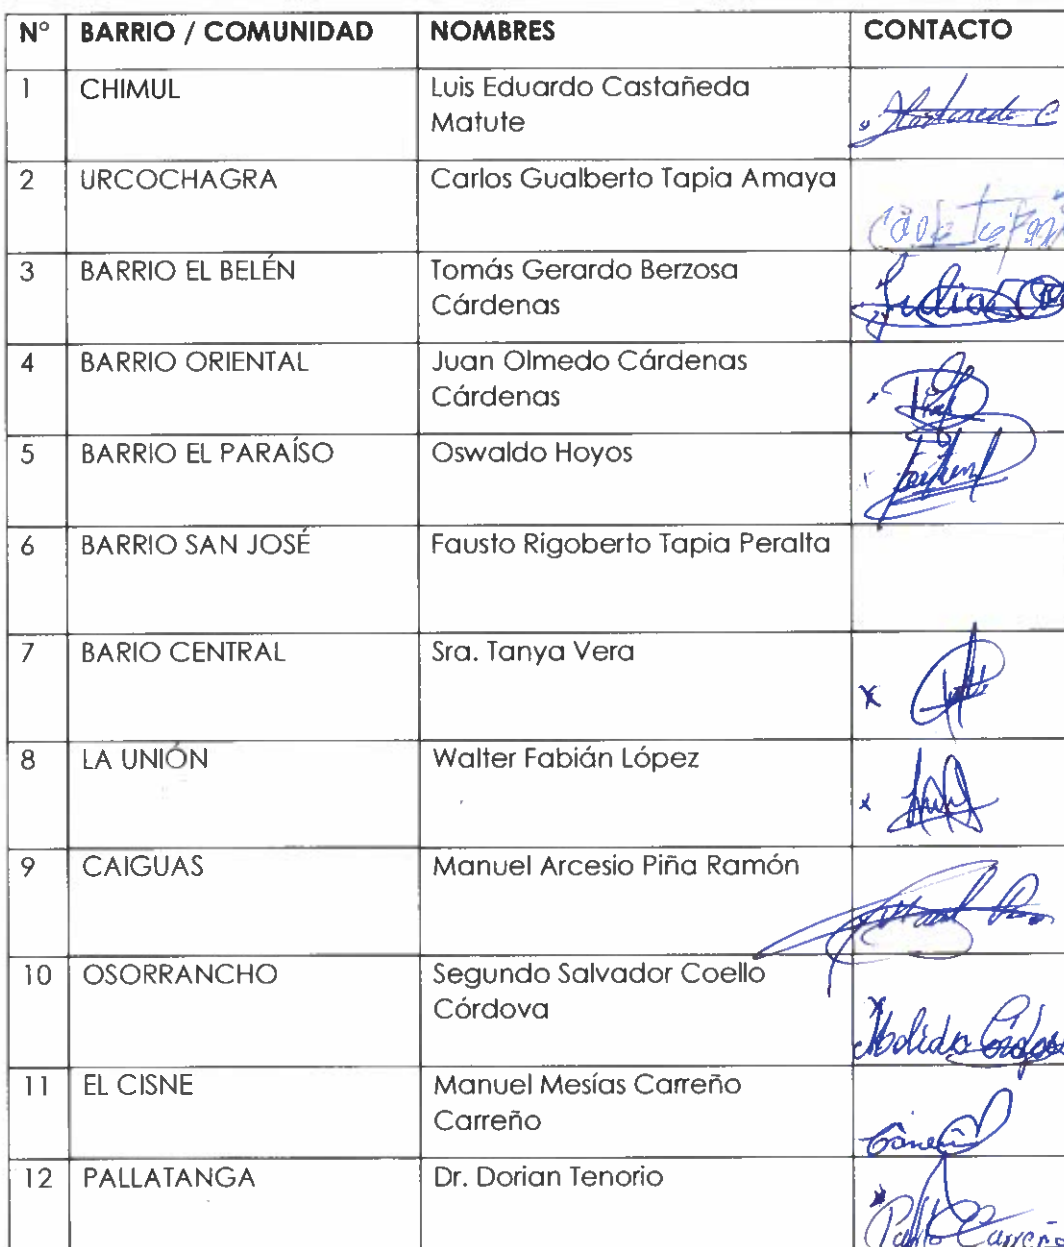 N° BARRIO / COMUNIDAD NOMBRES CONTACTO
1 CHIMUL Luis Eduardo Castañeda
Matute
2 URCOCHAGRA Carlos Gualberto Tapia Amaya
3 BARRIO EL BELÉN Tomás Gerardo Berzosa
Cárdenas
4 BARRIO ORIENTAL Juan Olmedo Cárdenas
Cárdenas
5 BARRIO EL PARAÍSO Oswaldo Hoyos
6 BARRIO SAN JOSÉ Fausto Rigoberto Tapia Peralta
7 BARIO CENTRAL Sra. Tanya Vera
8 LA UNIÓN Walter Fabián López
9 CAIGUAS Manuel Arcesio Piña Ramón
10 OSORRANCHO Segundo Salvador Coello
Córdova
11 EL CISNE Manuel Mesías Carreño
Carreño
12 PALLATANGA Dr. Dorian Tenorio